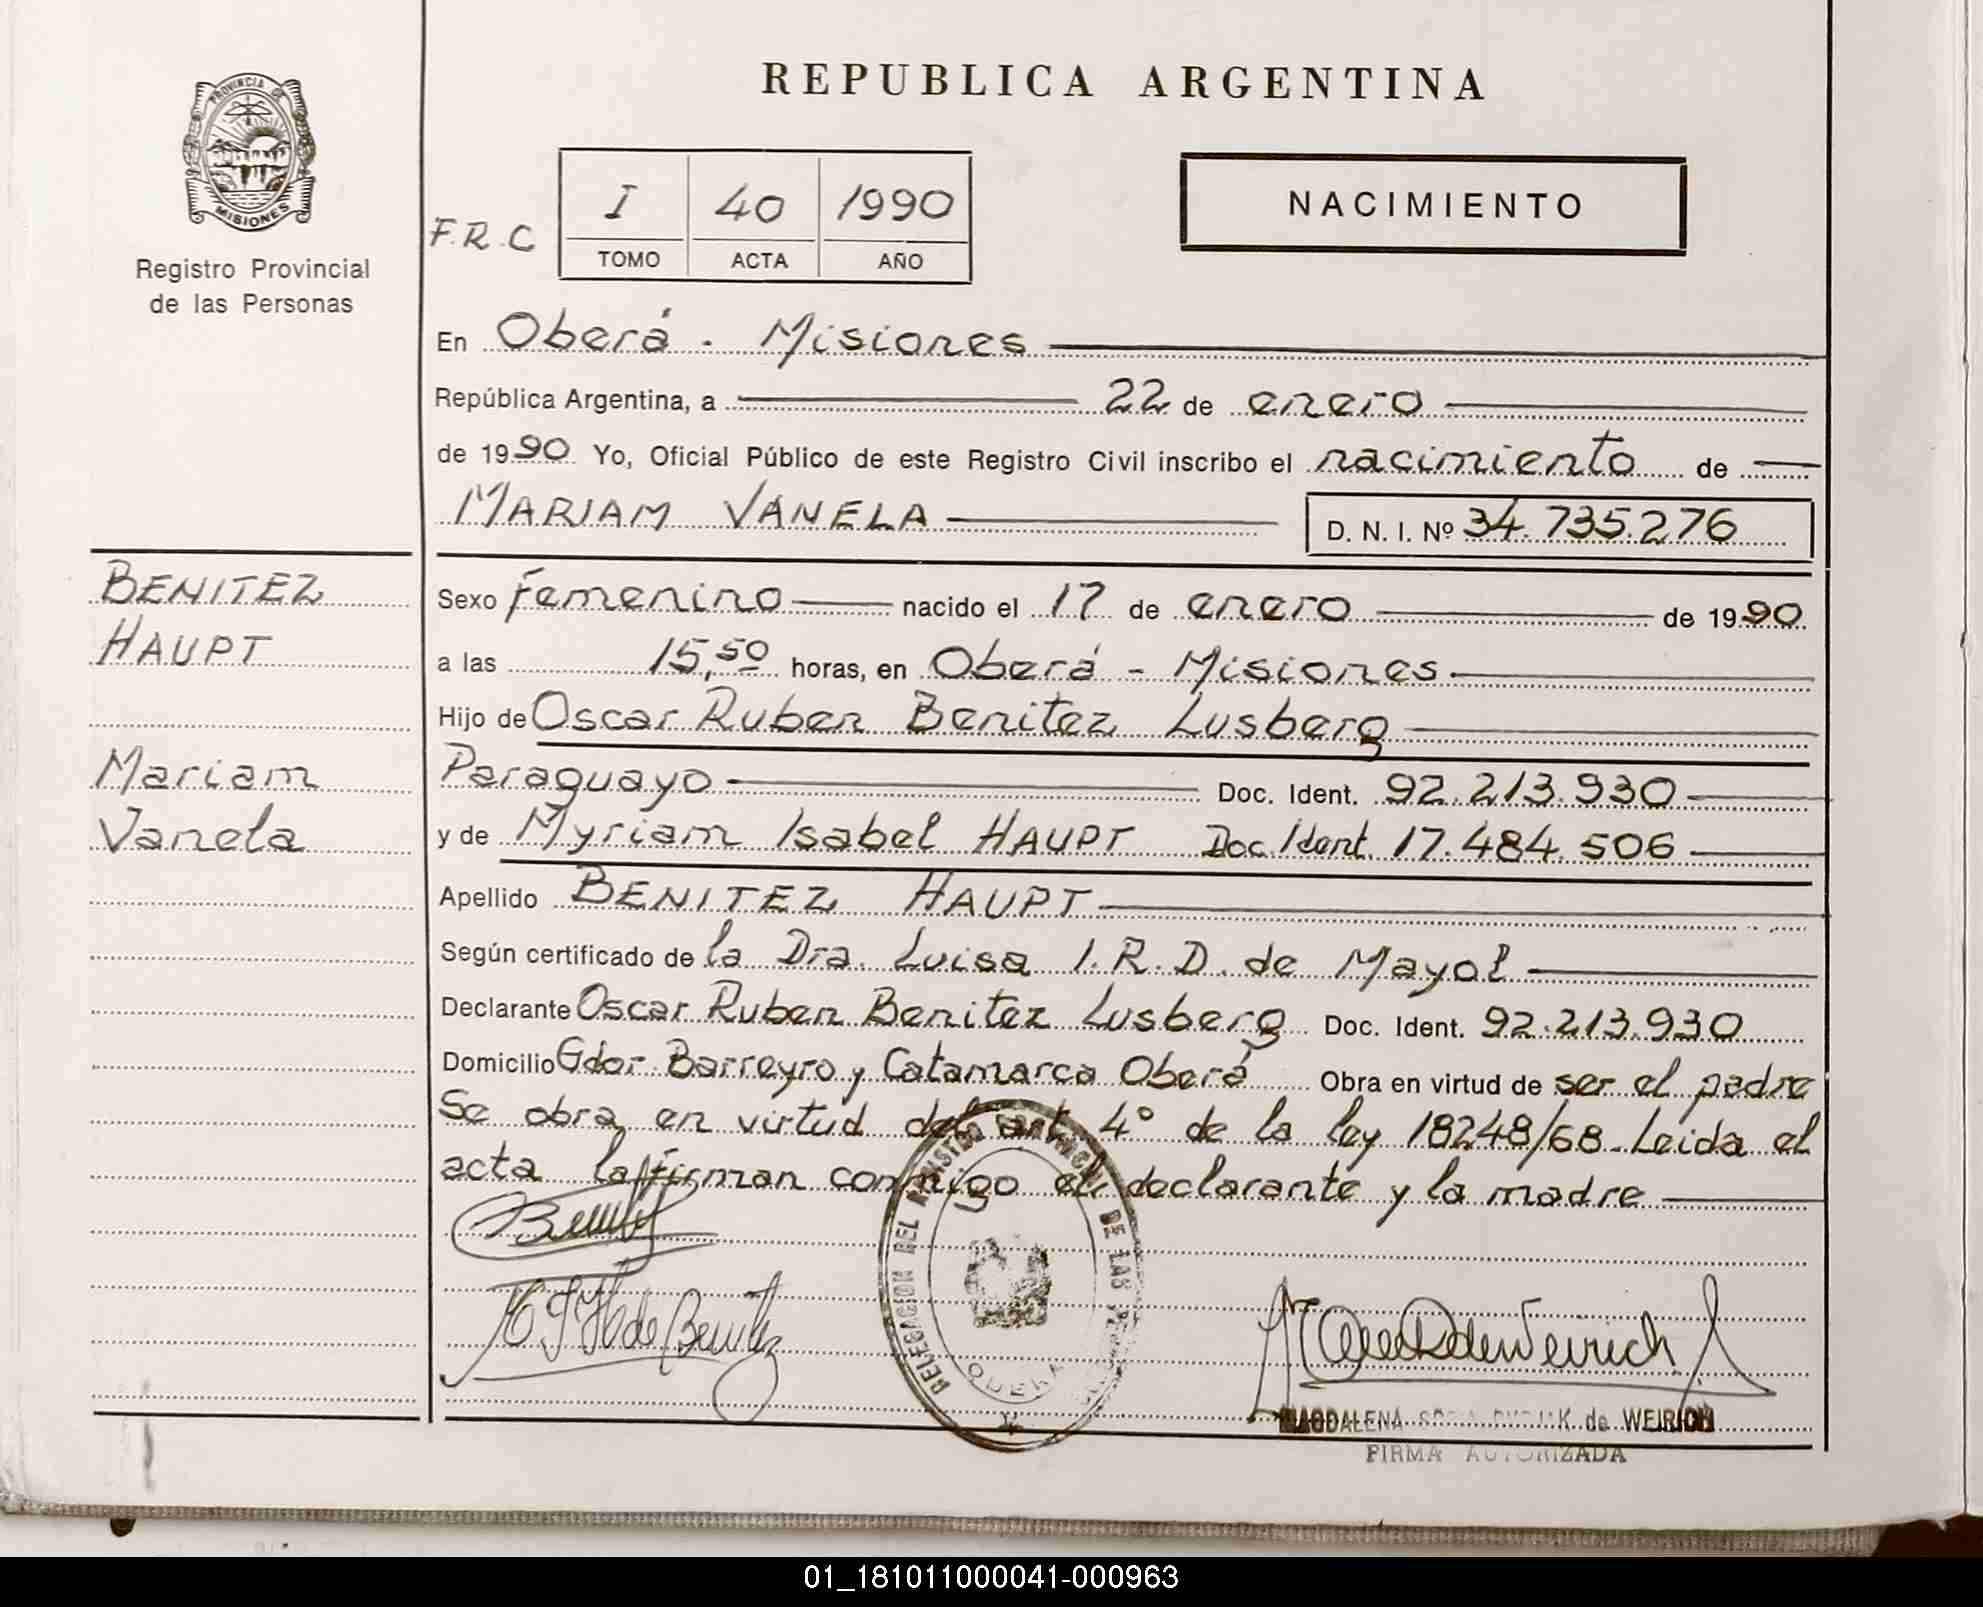 REPUBLICA ARGENTINA
PROVINCIA DE
MISIONES
Registro Provincial
de las Personas
F.R.C
I 40 1990
TOMO ACTA AÑO
NACIMIENTO
En Oberá - Misiones
República Argentina, a 22 de enero
de 1990 Yo, Oficial Público de este Registro Civil inscribo el nacimiento de
MARIAM VANELA D. N. I. Nº 34.735.276
BENITEZ
HAUPT
Mariam
Vanela
Sexo Femenino nacido el 17 de enero de 1990
a las 15,50 horas, en Oberá - Misiones
Hijo de Oscar Ruben Benitez Lusberg
Paraguayo Doc. Ident. 92.213.930
y de Myriam Isabel HAUPT Doc. Ident 17.484.506
Apellido BENITEZ HAUPT
Según certificado de la Dra. Luisa I.R.D. de Mayol
Declarante Oscar Ruben Benitez Lusberg Doc. Ident. 92.213.930
Domicilio Gdor. Barreyro y Catamarca Oberá Obra en virtud de ser el padre
Se obra en virtud del art. 4° de la ley 18248/68. Leida el
acta la firman conmigo el declarante y la madre
DELEGACION DEL REGISTRO PROVINCIAL DE LAS
OBERA
de Benitez
MAGDALENA de WEIRICH
FIRMA AUTORIZADA
01_181011000041-000963